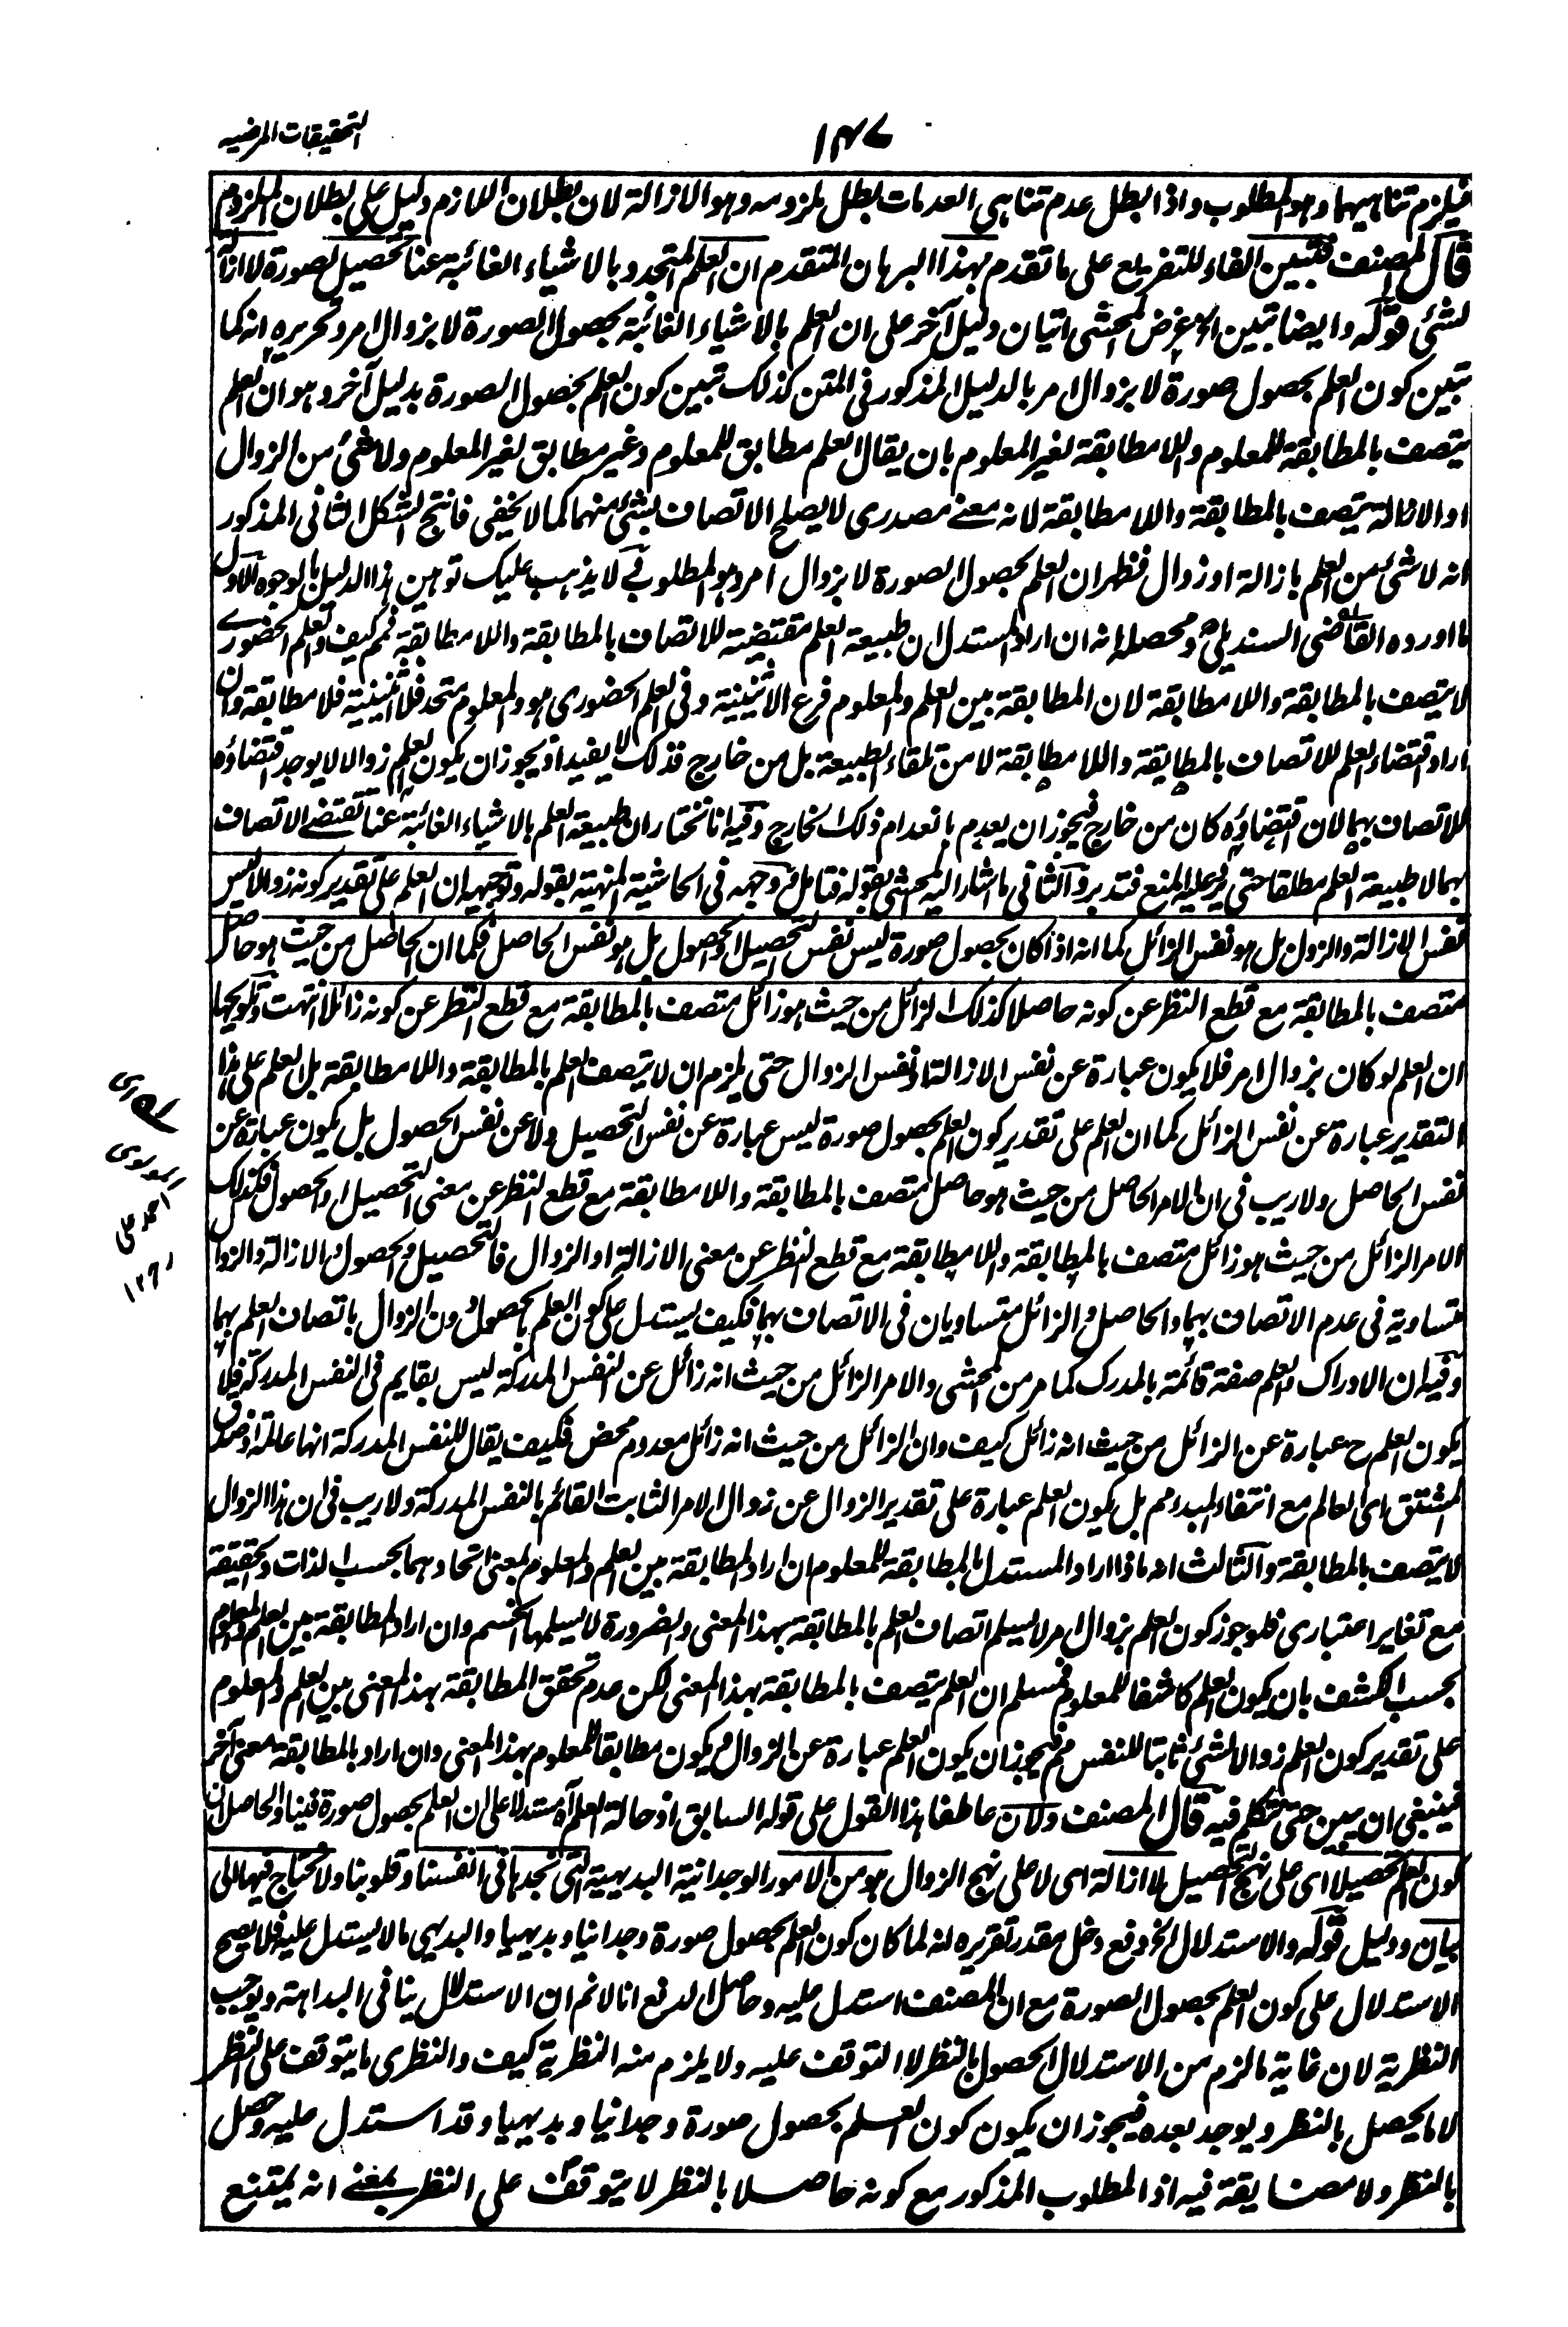 التحقيقات المرضیہ
١٤٧
فیلزم تناہیہما وہو المطلوب واذا بطل عدم تناہی العدمات بطل ملزومہ وہو الازالۃ لان بطلان اللازم دلیل علی بطلان الملزوم
قال المصنف فتبین الفاء للتفریع علی ما تقدم بہذا البرہان المتقدم ان العلم المتجدد بالاشیاء الغائبۃ عنا تحصیل لصورۃ لا ازالۃ
لشئ قولہ وایضا تبین الخ غرض المحشی اتیان دلیل آخر علی ان العلم بالاشیاء الغائبۃ بحصول الصورۃ لا بزوال امر وتحریرہ انہ کما
تبین کون العلم بحصول صورۃ لا بزوال امر بالدلیل المذکور فی المتن کذلک تبین کون العلم بحصول الصورۃ بدلیل آخر وہو ان العلم
یتصف بالمطابقۃ للمعلوم واللا مطابقۃ لغیر المعلوم بان یقال العلم مطابق للمعلوم وغیر مطابق لغیر المعلوم ولا شئ من الزوال
او الازالۃ یتصف بالمطابقۃ واللا مطابقۃ لانہ معنے مصدری لا یصلح الاتصاف بشئ منہما کما لا یخفی فانتج الشکل الثانی المذکور
انہ لا شئ من العلم بازالۃ او زوال فظہر ان العلم بحصول الصورۃ لا بزوال امر وہو المطلوب لا یذہب علیک توہین ہذا الدلیل بالوجوہ الاول
ما اوردہ القاضی السندیلی ومحصلہ انہ ان اراد المستدل ان طبیعۃ العلم مقتضیۃ للاتصاف بالمطابقۃ واللا مطابقۃ فمم کیف والعلم الحضورے
لا یتصف بالمطابقۃ واللا مطابقۃ لان المطابقۃ بین العلم والمعلوم فرع الاثنینیۃ وفی العلم الحضوری ہو والمعلوم متحد فلا اثنینیۃ فلا مطابقۃ وان
اراد اقتضاء العلم للاتصاف بالمطابقۃ واللا مطابقۃ لا من تلقاء الطبیعۃ بل من خارج فذلک لا یفید اذ یجوز ان یکون العلم زوالا لا یوجد اقتضاؤہ
للاتصاف بہما لان اقتضاؤہ کان من خارج فیجوز ان یعدم بانعدام ذلک الخارج وفیہ انا نختار ان طبیعۃ العلم بالاشیاء الغائبۃ عنا تقتضے الاتصاف
بہما لا طبیعۃ العلم مطلقا حتی یرد علیہ المنع فتدبر والثانی ما اشار الیہ المحشی بقولہ فتامل وجہہ فی الحاشیۃ المنہیۃ بقولہ وتوجیہہ ان العلم علی تقدیر کونہ زوالا لیس
نفس الازالۃ والزوال بل ہو نفس الزائل کما انہ اذا کان بحصول صورۃ لیس نفس التحصیل او الحصول بل ہو نفس الحاصل فکما ان الحاصل من حیث ہو حاصل
متصف بالمطابقۃ مع قطع النظر عن کونہ حاصلا کذلک الزائل من حیث ہو زائل متصف بالمطابقۃ مع قطع النظر عن کونہ زائلا انتہت وتلویحہا
ان العلم لو کان بزوال امر فلا یکون عبارۃ عن نفس الازالۃ او نفس الزوال حتی یلزم ان لا یتصف العلم بالمطابقۃ واللا مطابقۃ بل العلم علی ہذا
التقدیر عبارۃ عن نفس الزائل کما ان العلم علی تقدیر کون العلم بحصول صورۃ لیس عبارۃ عن نفس التحصیل ولا عن نفس الحصول بل یکون عبارۃ عن
نفس الحاصل ولا ریب فی ان الامر الحاصل من حیث ہو حاصل متصف بالمطابقۃ واللا مطابقۃ مع قطع النظر عن معنی التحصیل او الحصول فکذلک
الامر الزائل من حیث ہو زائل متصف بالمطابقۃ واللا مطابقۃ مع قطع النظر عن معنی الازالۃ او الزوال فالتحصیل والحصول والازالۃ والزوال
متساویۃ فی عدم الاتصاف بہما والحاصل والزائل متساویان فی الاتصاف بہما فکیف یستدل علی کون العلم بالحصول دون الزوال باتصاف العلم بہما
وفیہ ان الادراک والعلم صفۃ قائمۃ بالمدرک کما مر من المحشی والامر الزائل من حیث انہ زائل عن النفس المدرکۃ لیس بقایم فی النفس المدرکۃ فلا
یکون العلم ح عبارۃ عن الزائل من حیث انہ زائل کیف وان الزائل من حیث انہ زائل معدوم محض فکیف یقال للنفس المدرکۃ انہا عالمۃ اذ صدق
المشتق ای العالم مع انتفاء المبدء مم بل یکون العلم عبارۃ علی تقدیر الزوال عن زوال الامر الثابت القائم بالنفس المدرکۃ ولا ریب فی ان ہذا الزوال
لا یتصف بالمطابقۃ والثالث انہ ماذا اراد المستدل بالمطابقۃ للمعلوم ان اراد المطابقۃ بین العلم والمعلوم بمعنی اتحادہما بحسب الذات والحقیقۃ
مع تغایر اعتباری فلو جوز کون العلم بزوال امر لا یسلم اتصاف العلم بالمطابقۃ بہذا المعنی والضرورۃ لا یسلمہا الخصم وان اراد المطابقۃ بین العلم والمعلوم
بحسب الکشف بان یکون العلم کاشفا للمعلوم فمسلم ان العلم یتصف بالمطابقۃ بہذا المعنی لکن عدم تحقق المطابقۃ بہذا المعنی بین العلم والمعلوم
علی تقدیر کون العلم زوالا لشئ ثابتا للنفس مم فیجوز ان یکون العلم عبارۃ عن الزوال ویکون مطابقا للمعلوم بہذا المعنی وان اراد بالمطابقۃ معنی آخر
فینبغی ان یبین حتی نتکلم فیہ قال المصنف ولان عاطفا ہذا القول علی قولہ السابق اذ حالۃ العلم آہ مستدلا علی ان العلم بحصول صورۃ فینا والحاصل ان
کون العلم تحصیلا ای علی نہج التحصیل لا ازالۃ ای لا علی نہج الزوال ہو من الامور الوجدانیۃ البدیہیۃ التی نجدہا فی انفسنا وقلوبنا ولا نحتاج فیہا الی
بیان ودلیل قولہ والاستدلال الخ دفع دخل مقدر تقریرہ انہ لما کان کون العلم بحصول صورۃ وجدانیا وبدیہیا والبدیہی ما لا یستدل علیہ فلا یصح
الاستدلال علی کون العلم بحصول الصورۃ مع ان المصنف استدل علیہ وحاصل الدفع انا لا نم ان الاستدلال ینافی البداہۃ ویوجب
النظریۃ لان غایۃ ما لزم من الاستدلال الحصول بالنظر لا التوقف علیہ ولا یلزم منہ النظریۃ کیف والنظری ما یتوقف علی النظر
لا ما یحصل بالنظر ویوجد بعدہ فیجوز ان یکون کون العلم بحصول صورۃ وجدانیا وبدیہیا وقد استدل علیہ وحصل
بالنظر ولا مضایقۃ فیہ اذ المطلوب المذکور مع کونہ حاصلا بالنظر لا یتوقف علی النظر بمعنے انہ یمتنع
احمد علی